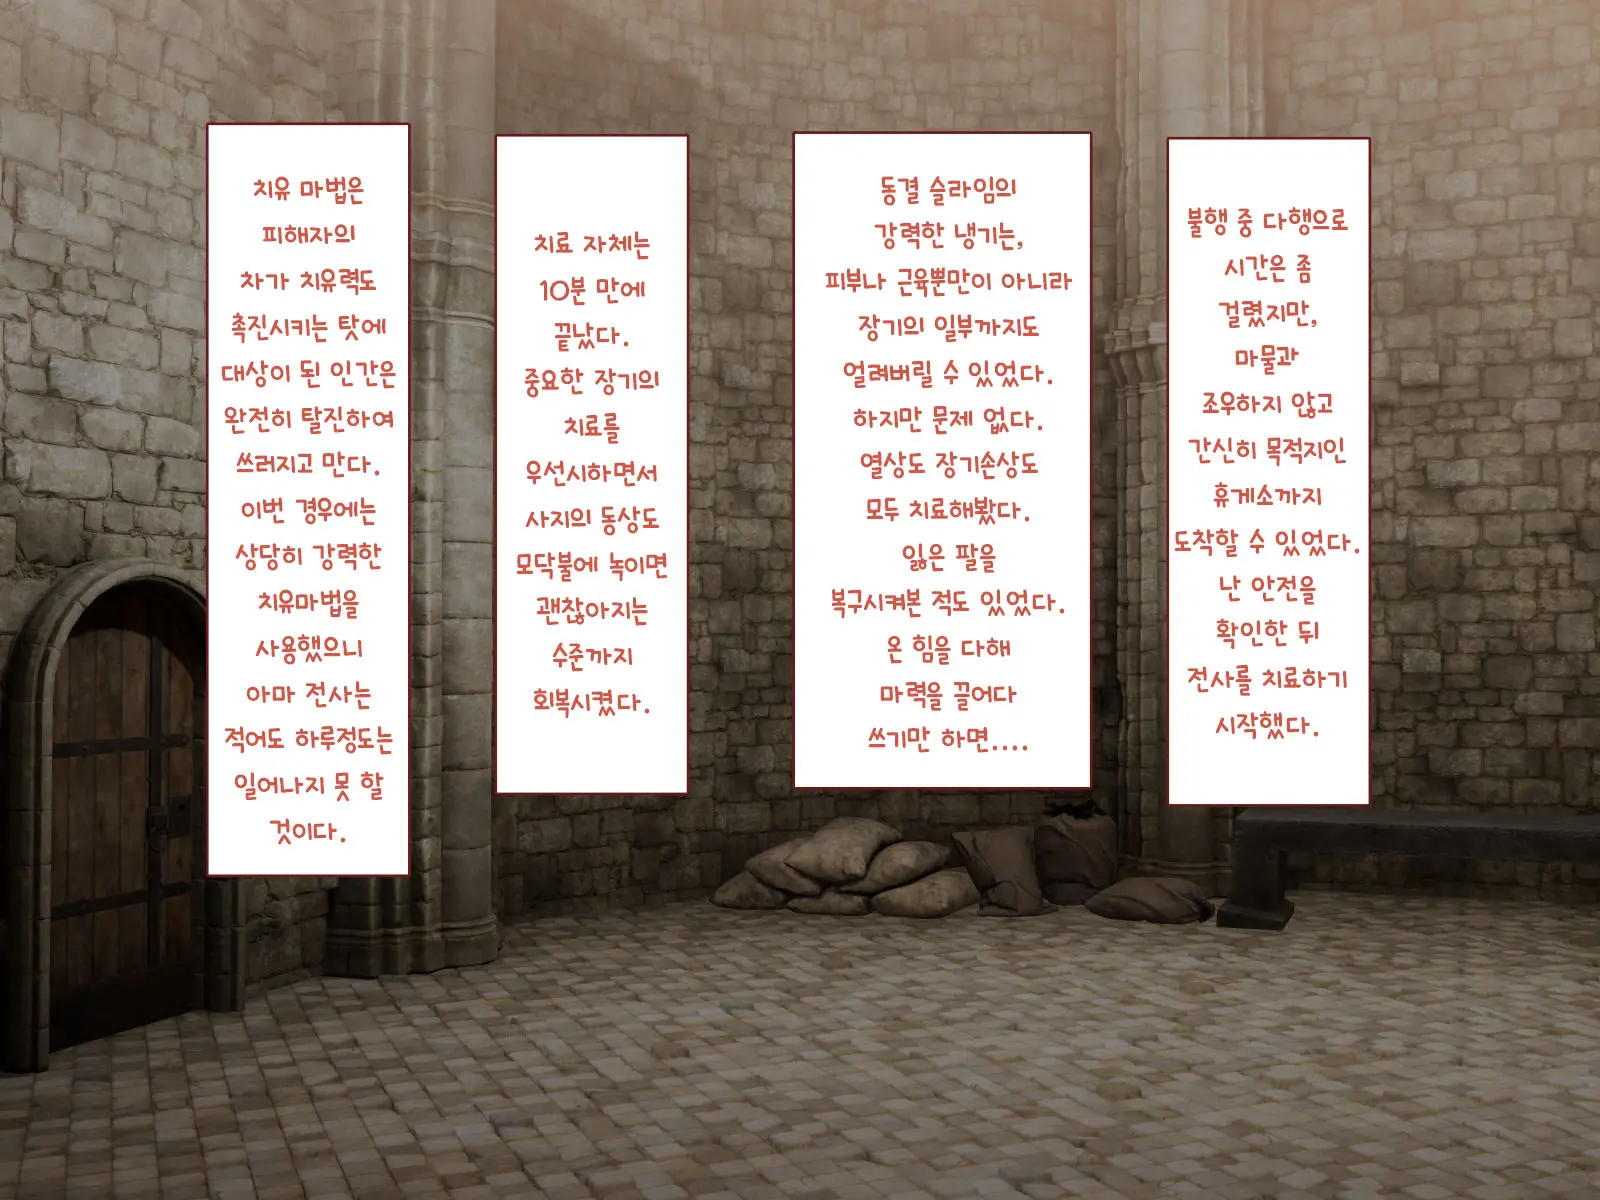 불행 중 다행으로
시간은 좀
걸렸지만,
마물과
조우하지 않고
간신히 목적지인
휴게소까지
도착할 수 있었다.
난 안전을
확인한 뒤
전사를 치료하기
시작했다.
동결 슬라임의
강력한 냉기는,
피부나 근육뿐만이 아니라
장기의 일부까지도
얼려버릴 수 있었다.
하지만 문제 없다.
열상도 장기손상도
모두 치료해봤다.
잃은 팔을
복구시켜본 적도 있었다.
온 힘을 다해
마력을 끌어다
쓰기만 하면....
치료 자체는
10분 만에
끝났다.
중요한 장기의
치료를
우선시하면서
사지의 동상도
모닥불에 녹이면
괜찮아지는
수준까지
회복시켰다.
치유 마법은
피해자의
차가 치유력도
촉진시키는 탓에
대상이 된 인간은
완전히 탈진하여
쓰러지고 만다.
이번 경우에는
상당히 강력한
치유마법을
사용했으니
아마 전사는
적어도 하루정도는
일어나지 못 할
것이다.